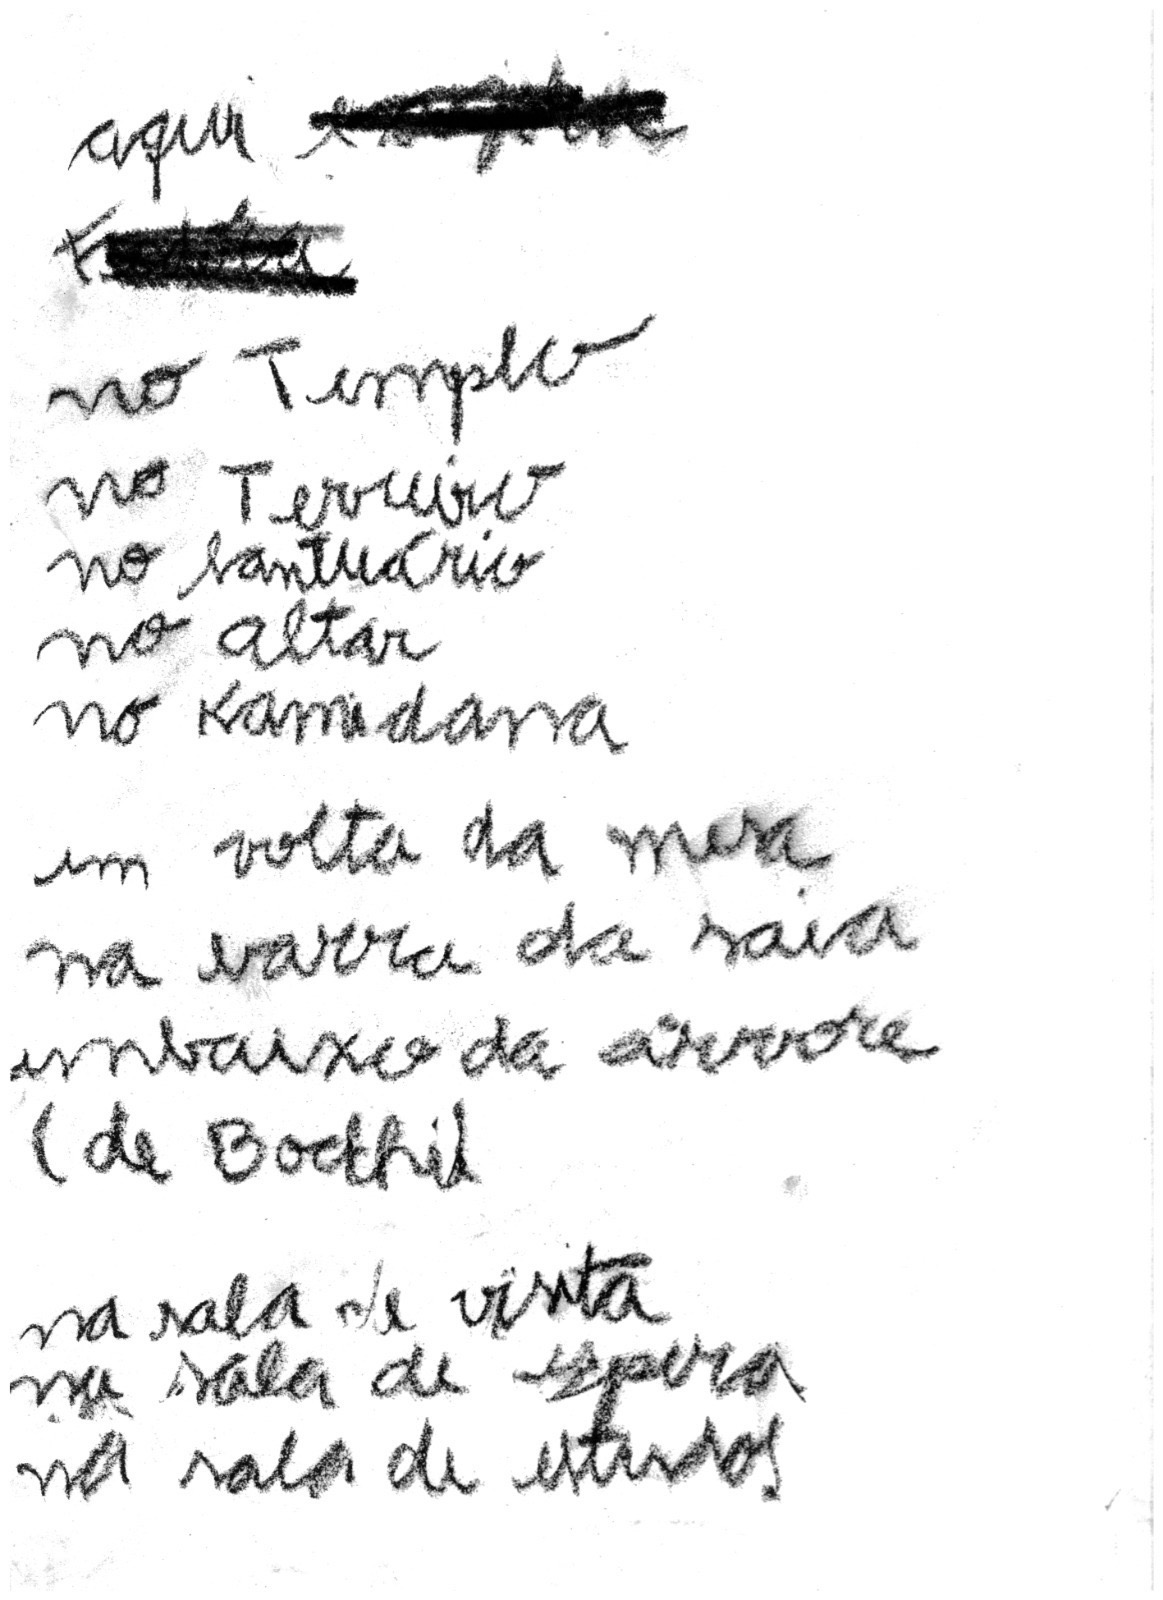 aqui
no Templo
no Terreiro
no santuário
no altar
no Kamidana
em volta da mesa
na barra da saia
embaixo da árvore
(de Bodhi)
na sala de visita
na sala de espera
na sala de estudos